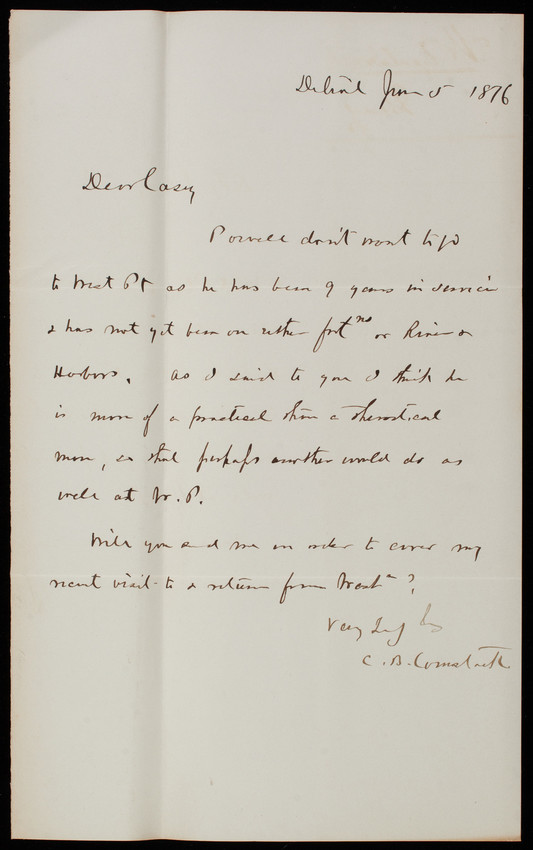 Detroit June 5 1876
Dear Casey
Powell don't want to go
to West Pt as he has been 9 years in service
& has not yet been on either fortns or River &
Harbors. As I said to you I think he
is more of a practical than a theoretical
man, so that perhaps another would do as
well at W.P.
Will you send me an order to cover my
recent visit to & return from Washn?
Very
C. B. Comstock